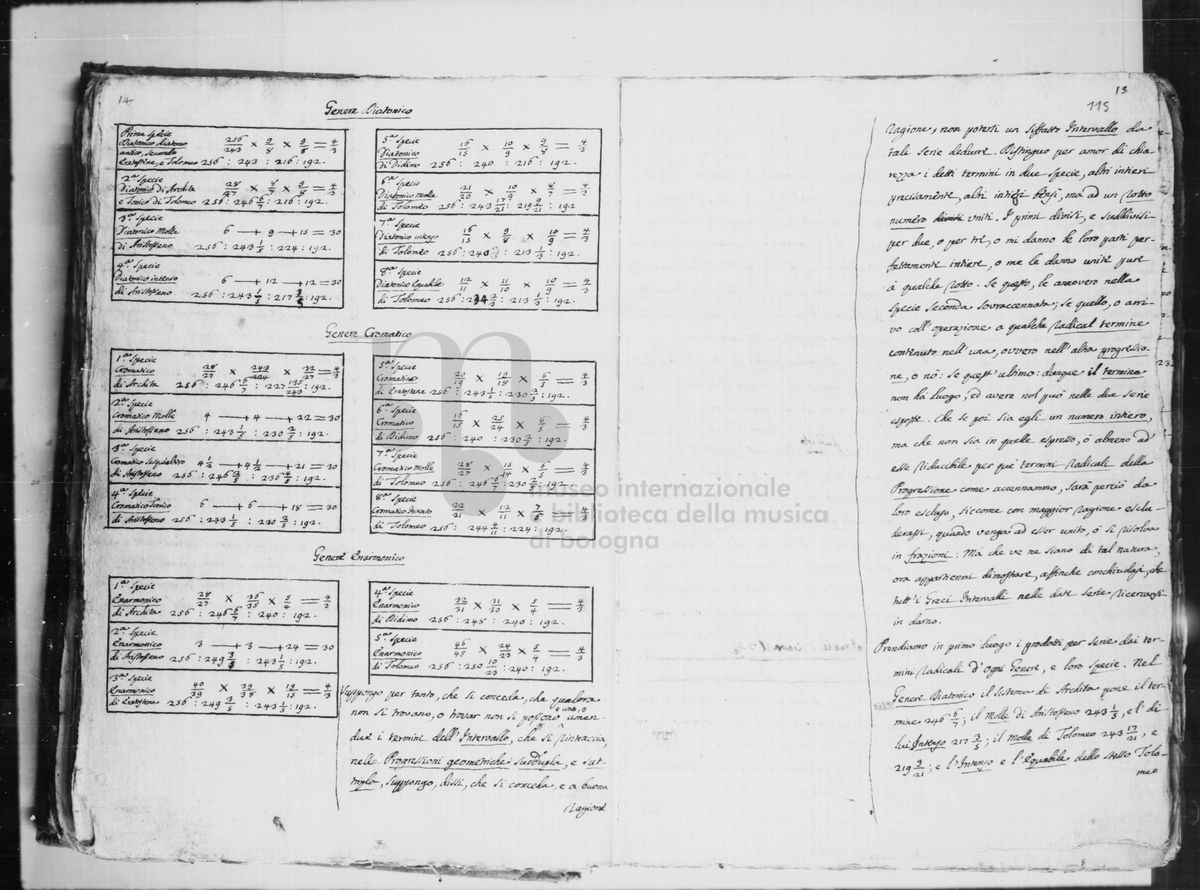 14
Genere Diatonico
Prima Specie
Diatonico Diatono
antico, secondo
Eratostene, e Tolomeo
256/243 × 9/8 × 9/8 = 4/3
256 : 243 : 216 : 192.
2.ª Specie
Diatonico di Archita
e Tonico di Tolomeo
28/27 × 8/7 × 9/8 = 4/3
256 : 246 6/7 : 216 : 192.
3.ª Specie
Diatonico Molle
di Aristosseno
6 + 9 + 15 = 30
256 : 243 1/5 : 224 : 192.
4.ª Specie
Diatonico intenso
di Aristosseno
6 + 12 + 12 = 30
256 : 243 1/5 : 217 3/5 : 192.
5.ª Specie
Diatonico
di Didimo
16/15 × 10/9 × 9/8 = 4/3
256 : 240 : 216 : 192.
6.ª Specie
Diatonico Molle
di Tolomeo
21/20 × 10/9 × 8/7 = 4/3
256 : 243 17/21 : 219 9/21 : 192.
7.ª Specie
Diatonico intenso
di Tolomeo
16/15 × 9/8 × 10/9 = 4/3
256 : 240 : 213 1/3 : 192.
8.ª Specie
Diatonico Equabile
di Tolomeo
12/11 × 11/10 × 10/9 = 4/3
256 : 234 2/3 : 213 1/3 : 192.
Genere Cromatico
1.ª Specie
Cromatico
di Archita
28/27 × 243/224 × 32/27 = 4/3
256 : 246 6/7 : 227 135/243 : 192.
2.ª Specie
Cromatico Molle
di Aristosseno
4 + 4 + 22 = 30
256 : 243 1/5 : 230 2/5 : 192.
3.ª Specie
Cromatico Sesquialtero
di Aristosseno
4 1/2 + 4 1/2 + 21 = 30
4.ª Specie
Cromatico Tonico
di Aristosseno
6 + 6 + 18 = 30
256 : 243 1/5 : 230 2/5 : 192.
5.ª Specie
Cromatico
di Eratostene
20/19 × 19/18 × 6/5 = 4/3
256 : 243 1/5 : 230 2/5 : 192.
6.ª Specie
Cromatico
di Didimo
16/15 × 25/24 × 6/5 = 4/3
256 : 240 : 230 2/5 : 192.
7.ª Specie
Cromatico Molle
di Tolomeo
28/27 × 15/14 × 6/5 = 4/3
256 : 246 6/7 : 230 2/5 : 192.
8.ª Specie
Cromatico
di Tolomeo
22/21 × 12/11 × 7/6 = 4/3
256 : 244 4/11 : 224 : 192.
Genere Enarmonico
1.ª Specie
Enarmonico
di Archita
28/27 × 36/35 × 5/4 = 4/3
256 : 246 6/7 : 240 : 192.
2.ª Specie
Enarmonico
di Aristosseno
3 + 3 + 24 = 30
256 : 249 3/5 : 243 1/5 : 192.
3.ª Specie
Enarmonico
di Eratostene
40/39 × 39/38 × 19/15 = 4/3
256 : 249 3/5 : 243 1/5 : 192.
4.ª Specie
Enarmonico
di Didimo
32/31 × 31/30 × 5/4 = 4/3
256 : 248 : 240 : 192.
5.ª Specie
Enarmonico
di Tolomeo
46/45 × 24/23 × 5/4 = 4/3
256 : 250 10/23 : 240 : 192.
Suppongo per tanto, che si conceda, che qualora
non si trovano, o trovar non si possono
due i termini dell'Intervallo, che si rintraccia,
nelle Progressioni geometriche Suddupla, e Sut-
tripla, suppongo, dissi, che si conceda, e a buona
ragione
15
115
ragione, non potersi un siffatto Intervallo da
tale serie dedurre. Distinguo per amor di chia-
rezza i detti termini in due Specie, altri intieri
precisamente, altri intieri bensì, ma ad un rotto
numero uniti. I primi divisi, e suddivisi
per due, o per tre, o mi danno le loro parti per-
fettamente intiere, o me le danno unite pure
à qualche rotto. Se questo, le annovero nella
Specie Seconda sovraccennata; se quello, o arri-
vo coll'operazione a qualche Radical termine
contenuto nell'una, ovvero nell'altra progressio-
ne, o nò. Se quest'ultimo: dunque il termine
non ha luogo, ed aver nol può nelle due serie
esposte. Che se poi sia egli un numero intiero,
ma che non sia in quelle espresso, ò almeno ad
esse riducibile per que' termini Radicali della
Progressione come accennammo, sarà perciò da
loro escluso, siccome con maggior ragione esclu-
derassi, quando venga ad esser unito, ò si risolva
in frazioni: Ma che ve ne siano di tal natura,
ora appartiemmi dimostrare, affinche conchiudasi, che
tutt'i Greci Intervalli nelle date Serie ricercansi
in darno.
Prendiamo in primo luogo i prodotti per serie dai ter-
mini Radicali d'ogni Genere, e loro Specie. Nel
Genere Diatonico il Sistema di Archita pone il ter-
mine 246 6/7; il Molle di Aristosseno 243 1/5, e l' di
lui Intenso 217 3/5; il Molle di Tolomeo 243 17/21, e
219 9/21; e l'Intenso e l'Equabile dello stesso Tolo-
meo
museo internazionale
e biblioteca della musica
di bologna